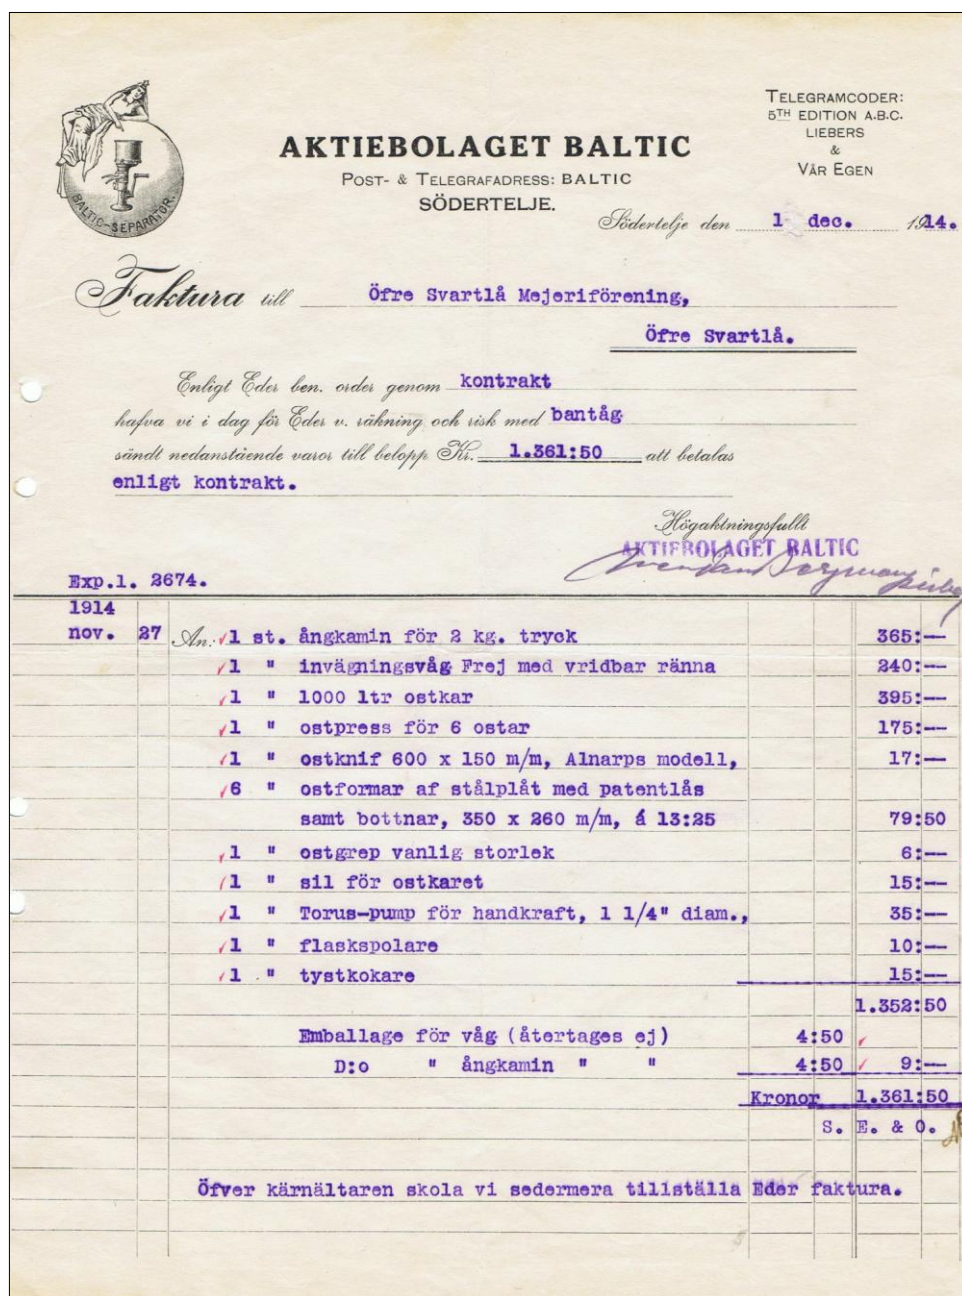 BALTIC-SEPARATOR.
TELEGRAMCODER:
5TH EDITION A.B.C.
LIEBERS
&
VÅR EGEN
AKTIEBOLAGET BALTIC
POST- & TELEGRAFADRESS: BALTIC
SÖDERTELJE.
Södertelje den 1 dec. 1914.
Faktura till Öfre Svartlå Mejeriförening,
Öfre Svartlå.
Enligt Eder ben. order genom kontrakt
hafva vi i dag för Eder v. räkning och risk med bantåg
sändt nedanstående varor till belopp Kr. 1.361:50 att betalas
enligt kontrakt.
Högaktningsfullt
AKTIEBOLAGET BALTIC
Exp.l. 2674.
1914
nov. 27 An: 1 st. ångkamin för 2 kg. tryck 365:—
1 " invägningsvåg Frej med vridbar ränna 240:—
1 " 1000 ltr ostkar 395:—
1 " ostpress för 6 ostar 175:—
1 " ostknif 600 x 150 m/m, Alnarps modell, 17:—
6 " ostformar af stålplåt med patentlås
samt bottnar, 350 x 260 m/m, á 13:25 79:50
1 " ostgrep vanlig storlek 6:—
1 " sil för ostkaret 15:—
1 " Torus-pump för handkraft, 1 1/4" diam., 35:—
1 " flaskspolare 10:—
1 " tystkokare 15:—
1.352:50
Emballage för våg (återtages ej) 4:50
D:o " ångkamin " " 4:50 9:—
Kronor 1.361:50
S. E. & O.
Öfver kärnältaren skola vi sedermera tillställa Eder faktura.